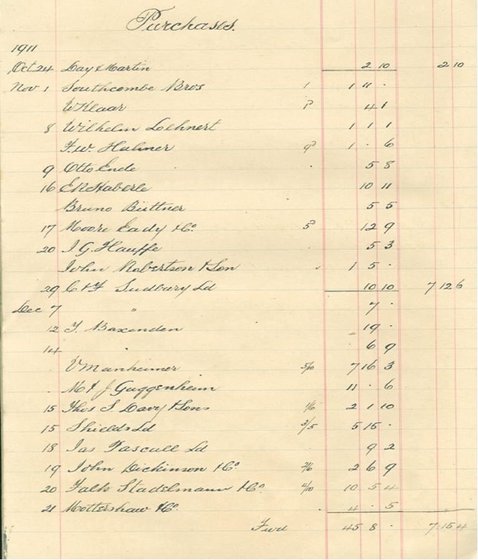 Purchases.
1911
Oct 24 Day & Martin 2 10 2 10
Nov 1 Southcombe Bros 1 11 .
W Klaar 4 1
8 Wilhelm Lohnert 1 1 1
F. W. Hahner 1 . 6
9 Otto Ende 5 8
16 E R Haberle 10 11
Bruno Büttner 5 5
17 Moore Eady & Co 12 9
20 J. G. Hauffe 5 3
John Robertson & Son 1 5 .
29 C & F Sudbury Ld 10 10 7 12 6
Dec 7 " 7 .
12 F. Baxendon 19 .
14 . 6 9
V Manheimer 5/0 7 16 3
M & J Guggenheim 11 . 6
15 Thos S Davy & Sons 1/6 2 1 10
15 Shields Ld 2/5 5 15 .
18 Jas Pascall Ld 9 2
19 John Dickinson & Co 2/6 2 6 9
20 Falk Stadelmann & Co 4/0 10 5 4
21 Mottershaw & Co 4 . 5
Fwd 45 8 . 7 15 4